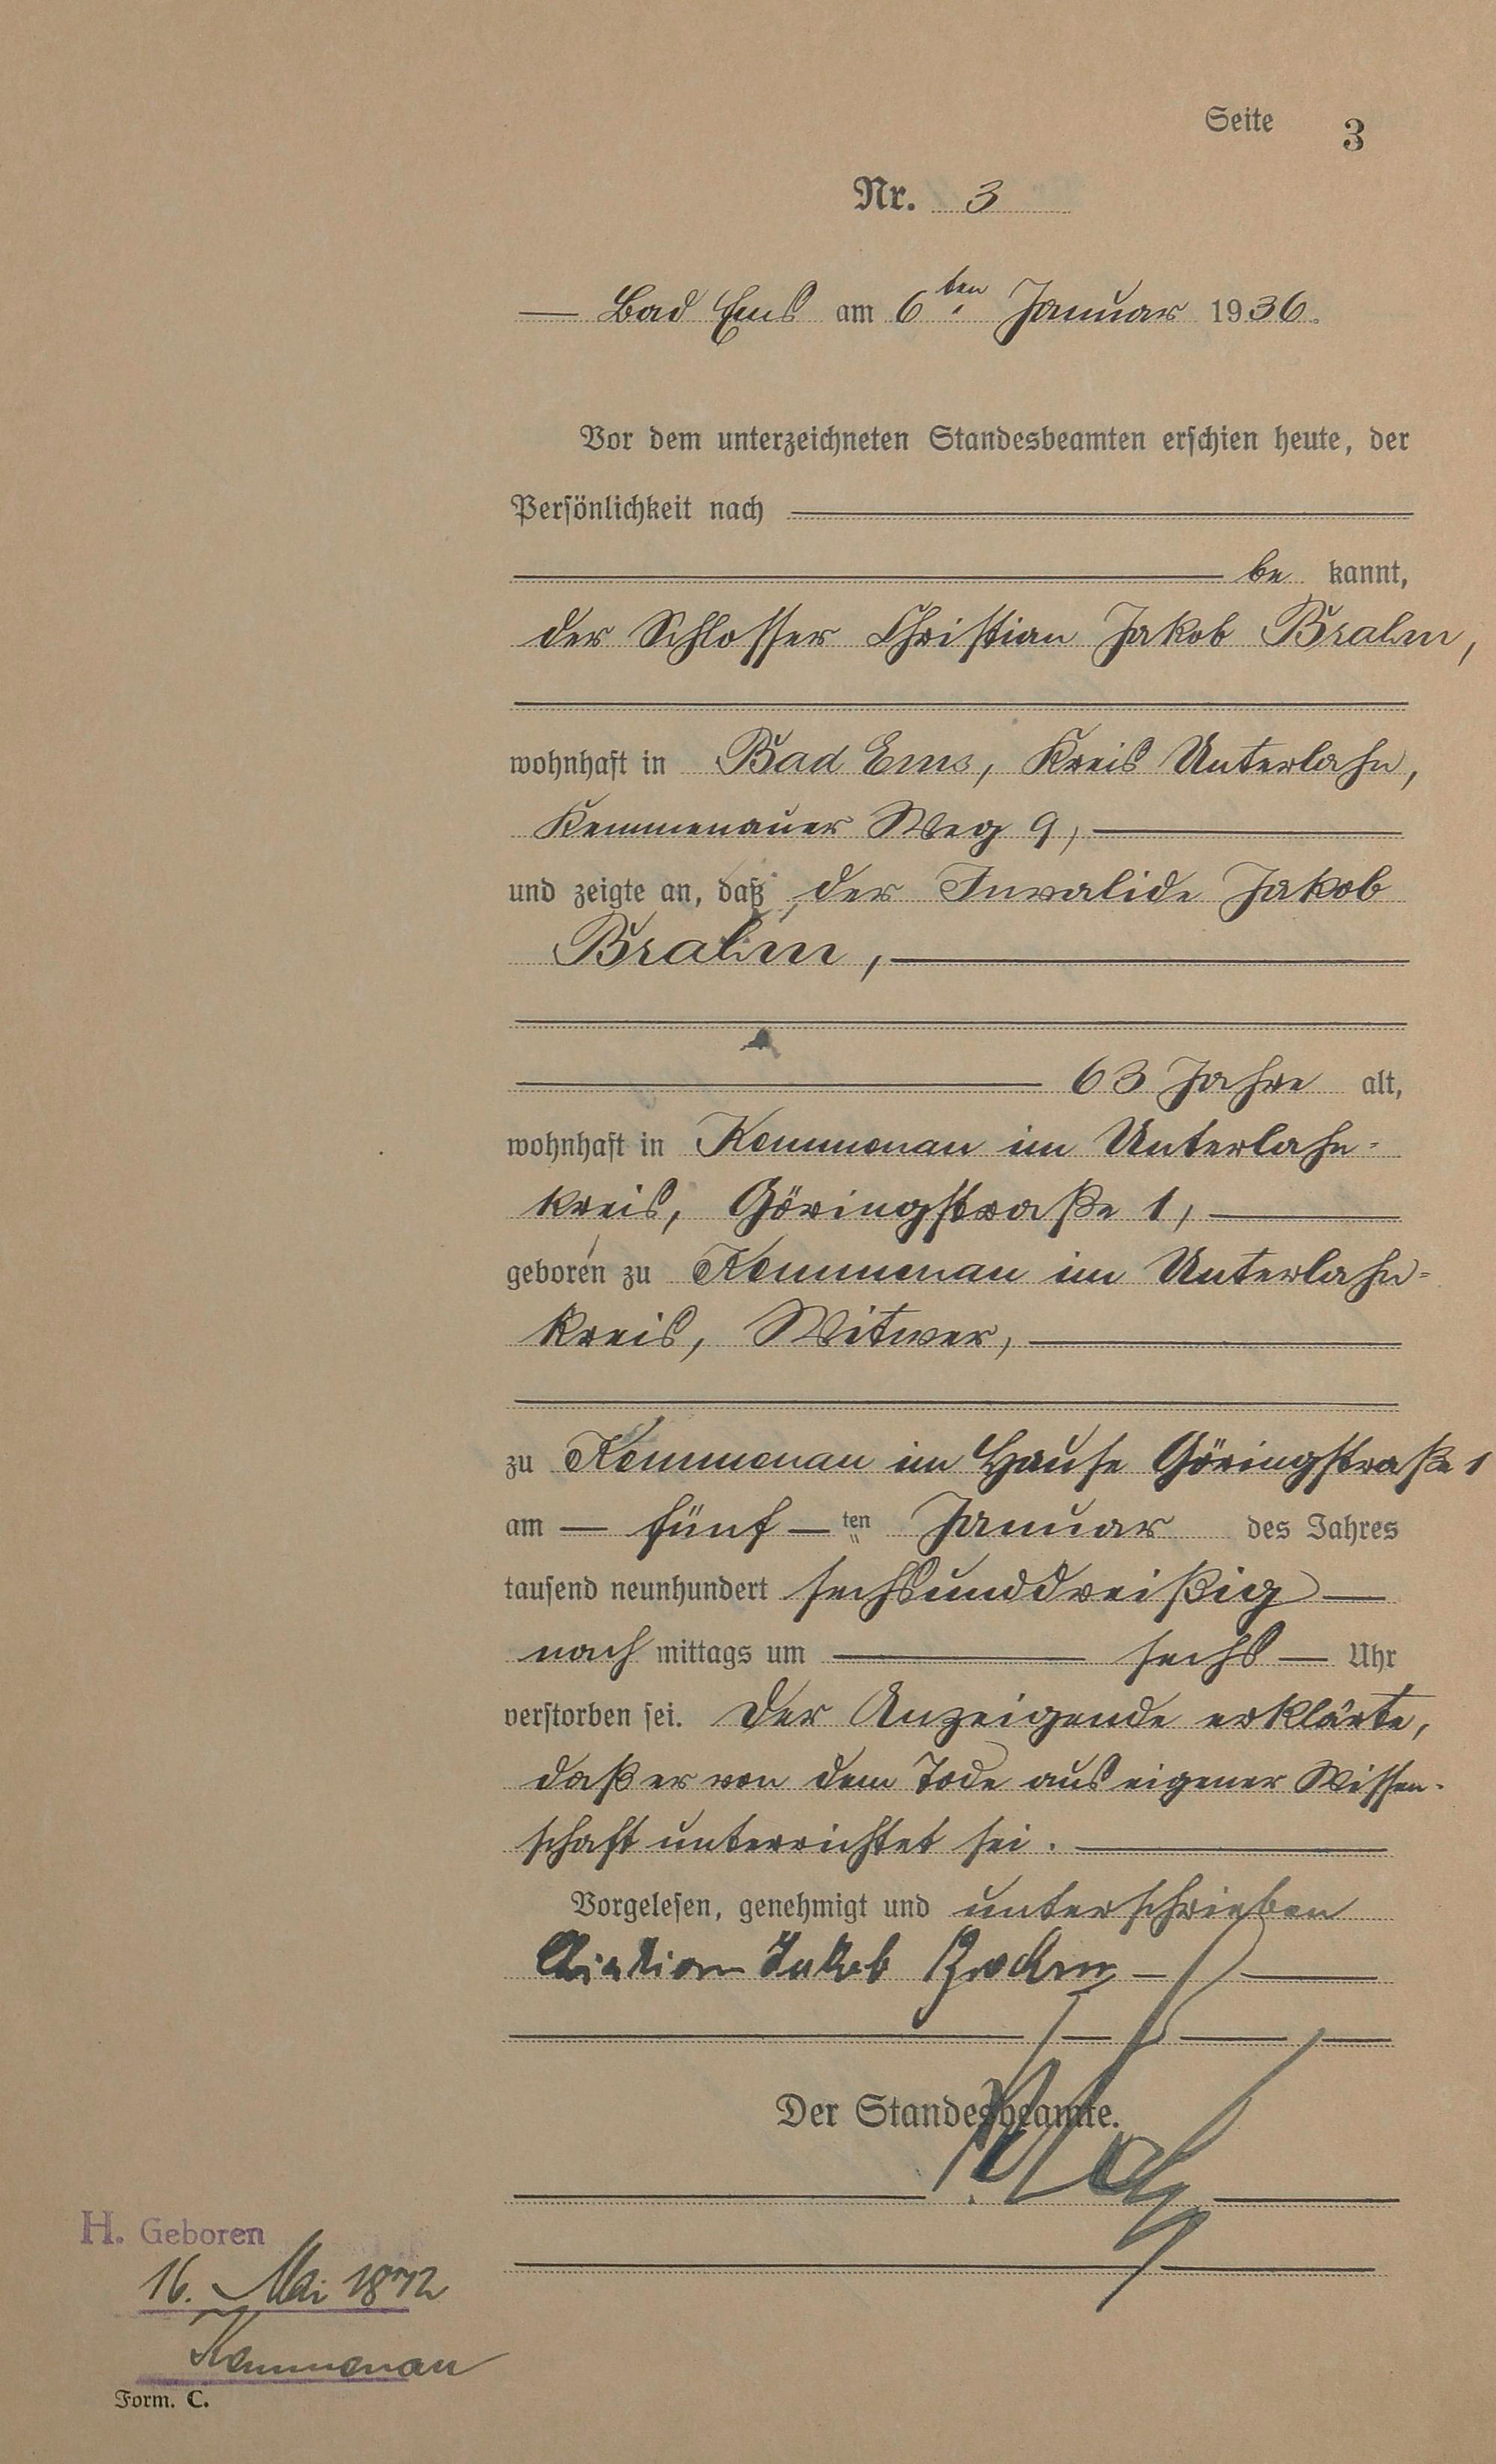 Seite 3
Nr. 3
— Bad Ems am 6ten Januar 1936.
Vor dem unterzeichneten Standesbeamten erschien heute, der
Persönlichkeit nach
be kannt,
der Schlosser Christian Jakob Brahm,
wohnhaft in Bad Ems, Kreis Unterlahn,
Kemmenauer Weg 9, —
und zeigte an, daß der Invalide Jakob
Brahm, —
63 Jahre alt,
wohnhaft in Kemmenau im Unterlahn-
kreis, Göringstraße 1, —
geboren zu Kemmenau im Unterlahn-
kreis, Witwer, —
zu Kemmenau im Hause Göringstraße 1
am — fünf — ten Januar des Jahres
tausend neunhundert sechsunddreißig —
nach mittags um — sechs — Uhr
verstorben sei. Der Anzeigende erklärte,
daß er von dem Tode aus eigener Wissen-
schaft unterrichtet sei. —
Vorgelesen, genehmigt und unterschrieben
Christian Jakob Brahm —
Der Standesbeamte.
H. Geboren
16. Mai 1872
Kemmenau
Form. C.